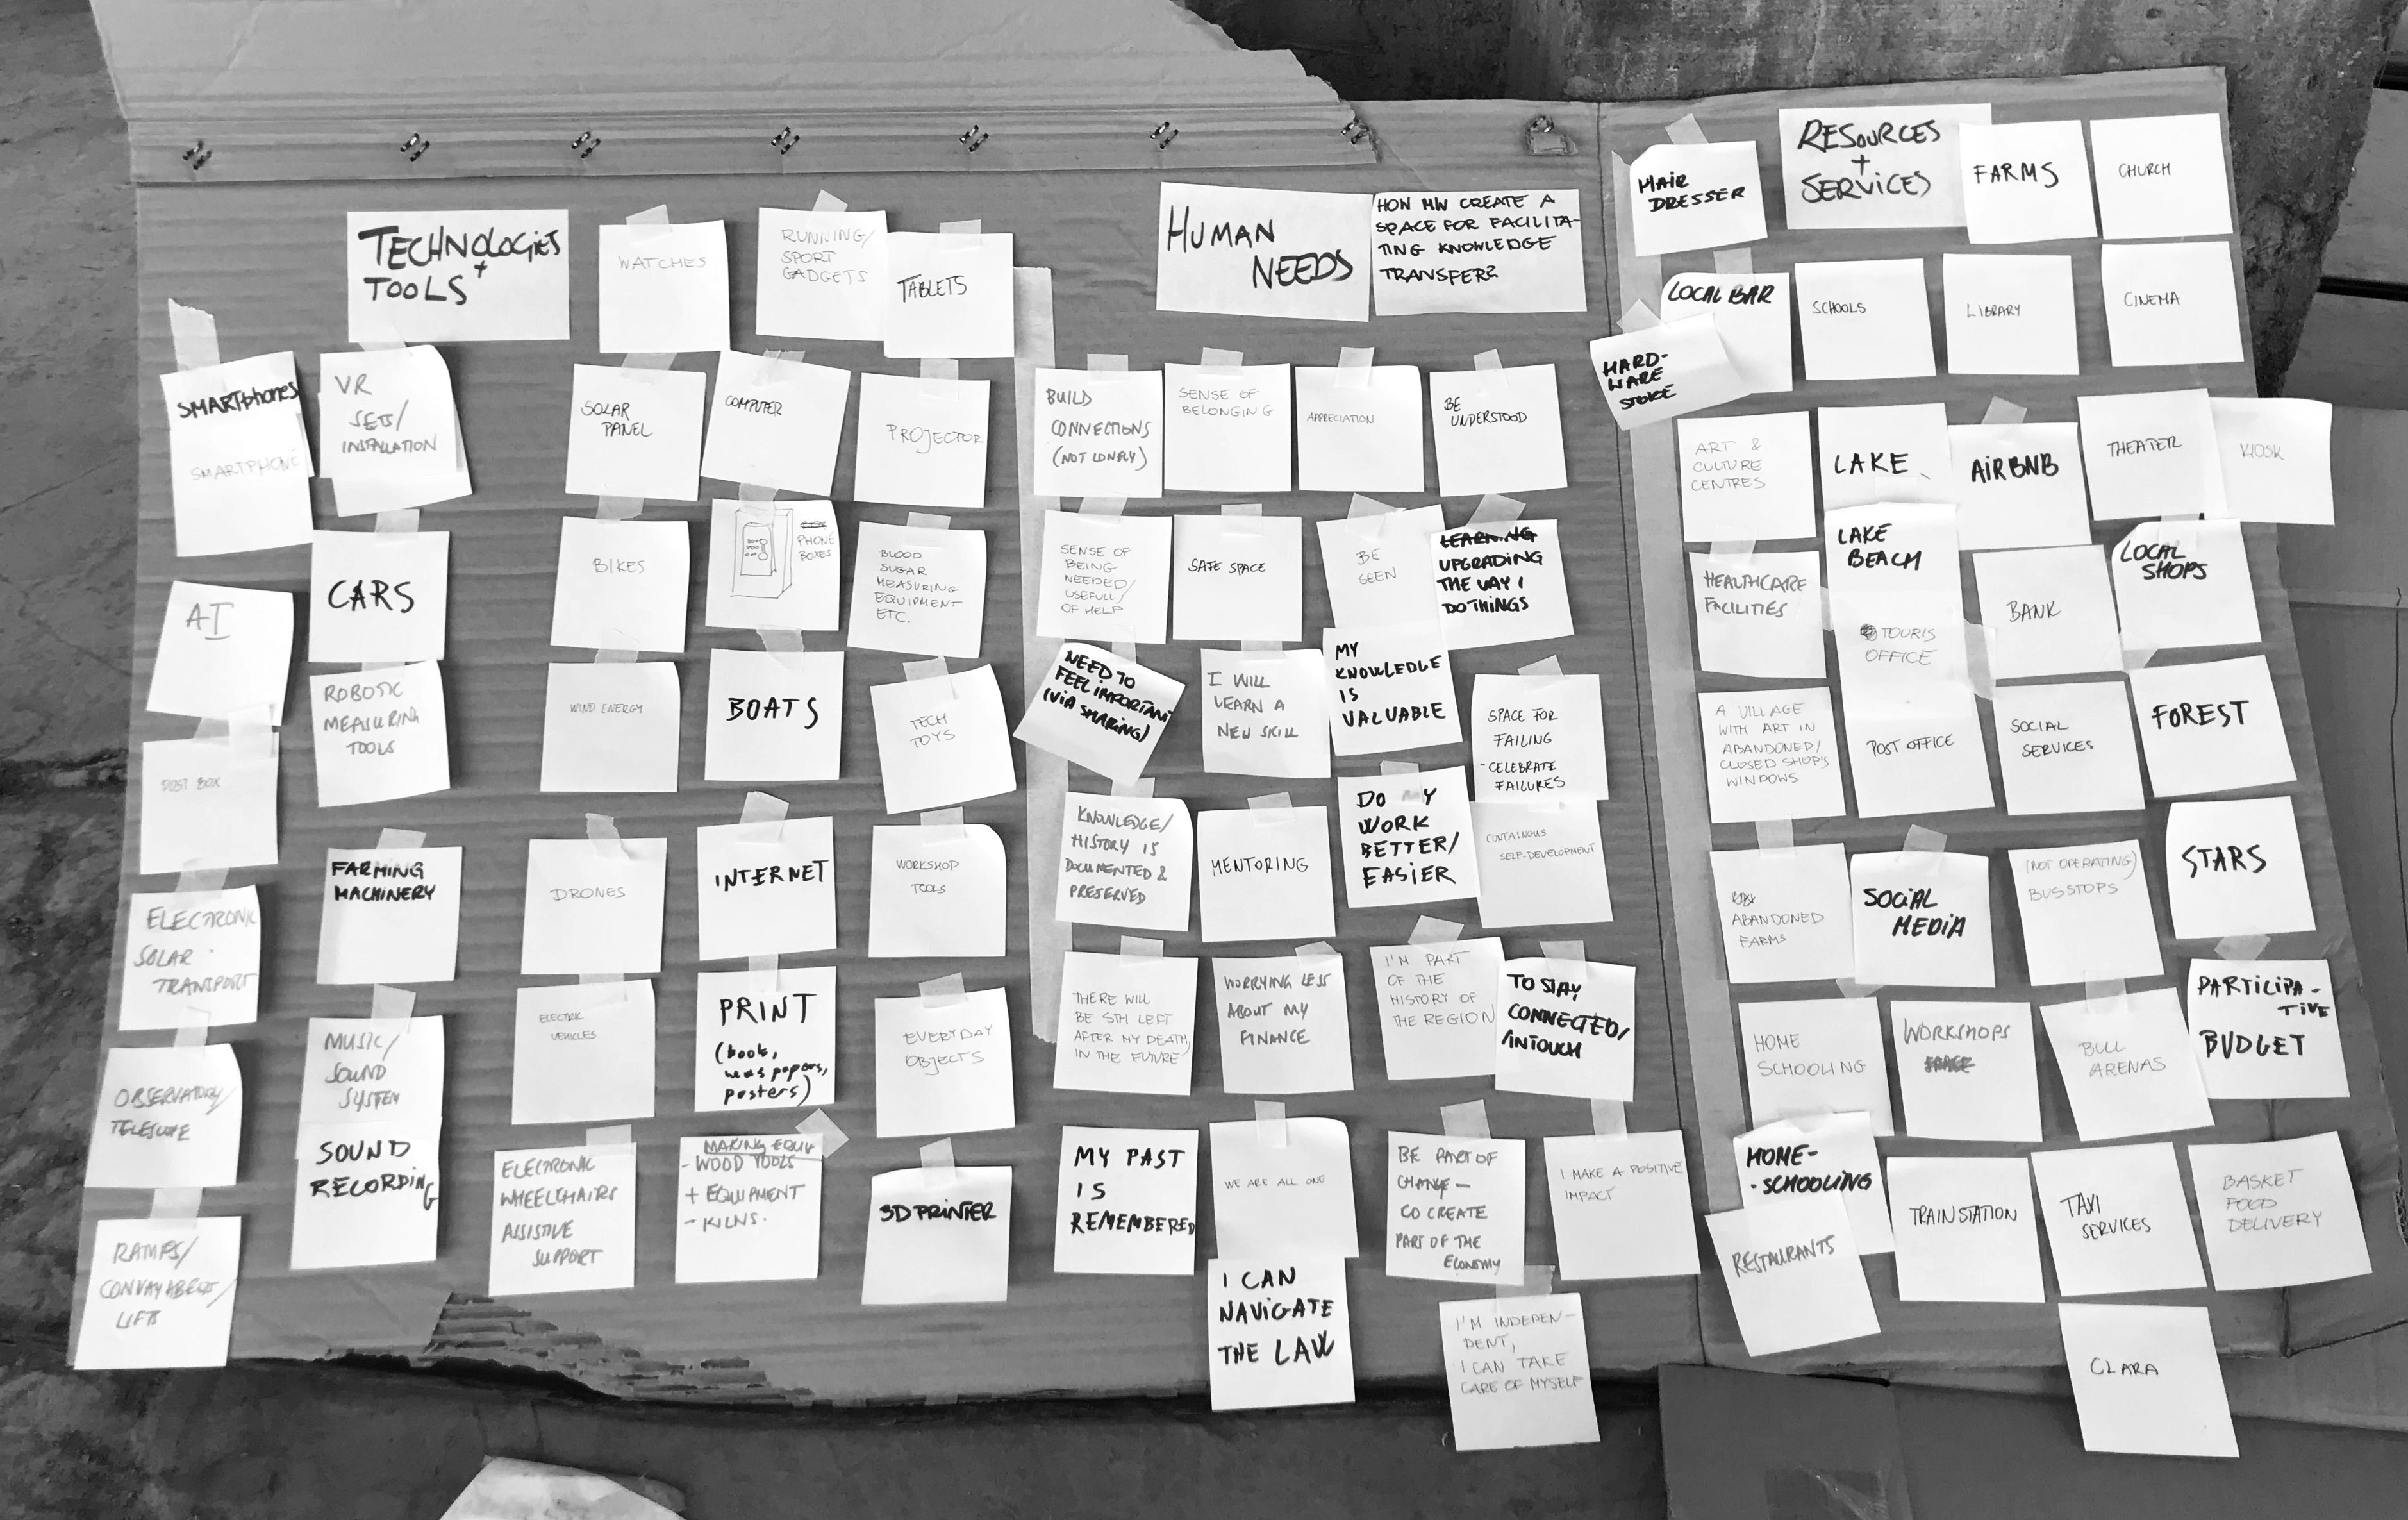 TECHNOLOGIES
+
TOOLS
WATCHES
RUNNING/
SPORT
GADGETS
TABLETS
SMARTPHONES
SMARTPHONE
VR
SETS/
INSTALLATION
SOLAR
PANEL
COMPUTER
PROJECTOR
CARS
BIKES
PHONE
BOXES
BLOOD
SUGAR
MEASURING
EQUIPMENT
ETC.
AI
ROBOTIC
MEASURING
TOOLS
WIND ENERGY
BOATS
TECH
TOYS
POST BOX
FARMING
MACHINERY
DRONES
INTERNET
WORKSHOP
TOOLS
ELECTRONIC
SOLAR
TRANSPORT
MUSIC/
SOUND
SYSTEM
ELECTRIC
VEHICLES
PRINT
(book,
news papers,
posters)
EVERYDAY
OBJECTS
OBSERVATORY/
TELESCOPE
SOUND
RECORDING
ELECTRONIC
WHEELCHAIRS
ASSISTIVE
SUPPORT
MAKING EQUIP
- WOOD TOOLS
+ EQUIPMENT
- KILNS.
3D PRINTER
RAMPS/
CONVAYABELTS/
LIFTS
HUMAN
NEEDS
HOW MW CREATE A
SPACE FOR FACILITA-
TING KNOWLEDGE
TRANSFER?
BUILD
CONNECTIONS
(NOT LONELY)
SENSE OF
BELONGING
APPRECIATION
BE
UNDERSTOOD
SENSE OF
BEING
NEEDED/
USEFULL/
OF HELP
SAFE SPACE
BE
SEEN
LEARNING
UPGRADING
THE WAY I
DO THINGS
NEED TO
FEEL IMPORTANT
(VIA SHARING)
I WILL
LEARN A
NEW SKILL
MY
KNOWLEDGE
IS
VALUABLE
SPACE FOR
FAILING
- CELEBRATE
FAILURES
KNOWLEDGE/
HISTORY IS
DOCUMENTED &
PRESERVED
MENTORING
DO MY
WORK
BETTER/
EASIER
CONTAINOUS
SELF-DEVELOPMENT
THERE WILL
BE STH LEFT
AFTER MY DEATH,
IN THE FUTURE
WORRYING LESS
ABOUT MY
FINANCE
I'M PART
OF THE
HISTORY OF
THE REGION
TO STAY
CONNECTED/
IN TOUCH
MY PAST
IS
REMEMBERED
WE ARE ALL ONE
BE PART OF
CHANGE -
CO CREATE
PART OF THE
ECONOMY
I MAKE A POSITIVE
IMPACT
I CAN
NAVIGATE
THE LAW
I'M INDEPEN-
DENT,
I CAN TAKE
CARE OF MYSELF
RESOURCES
+
SERVICES
HAIR
DRESSER
FARMS
CHURCH
LOCAL BAR
SCHOOLS
LIBRARY
CINEMA
HARD-
WARE
STORE
ART &
CULTURE
CENTRES
LAKE
AIRBNB
THEATER
KIOSK
HEALTHCARE
FACILITIES
LAKE
BEACH
TOURIS
OFFICE
BANK
LOCAL
SHOPS
A VILLAGE
WITH ART IN
ABANDONED/
CLOSED SHOP'S
WINDOWS
POST OFFICE
SOCIAL
SERVICES
FOREST
ABANDONED
FARMS
SOCIAL
MEDIA
(NOT OPERATING)
BUSSTOPS
STARS
HOME
SCHOOLING
WORKSHOPS
BULL
ARENAS
PARTICIPA-
TIVE
BUDGET
HOME-
-SCHOOLING
RESTAURANTS
TRAINSTATION
TAXI
SERVICES
BASKET
FOOD
DELIVERY
CLARA